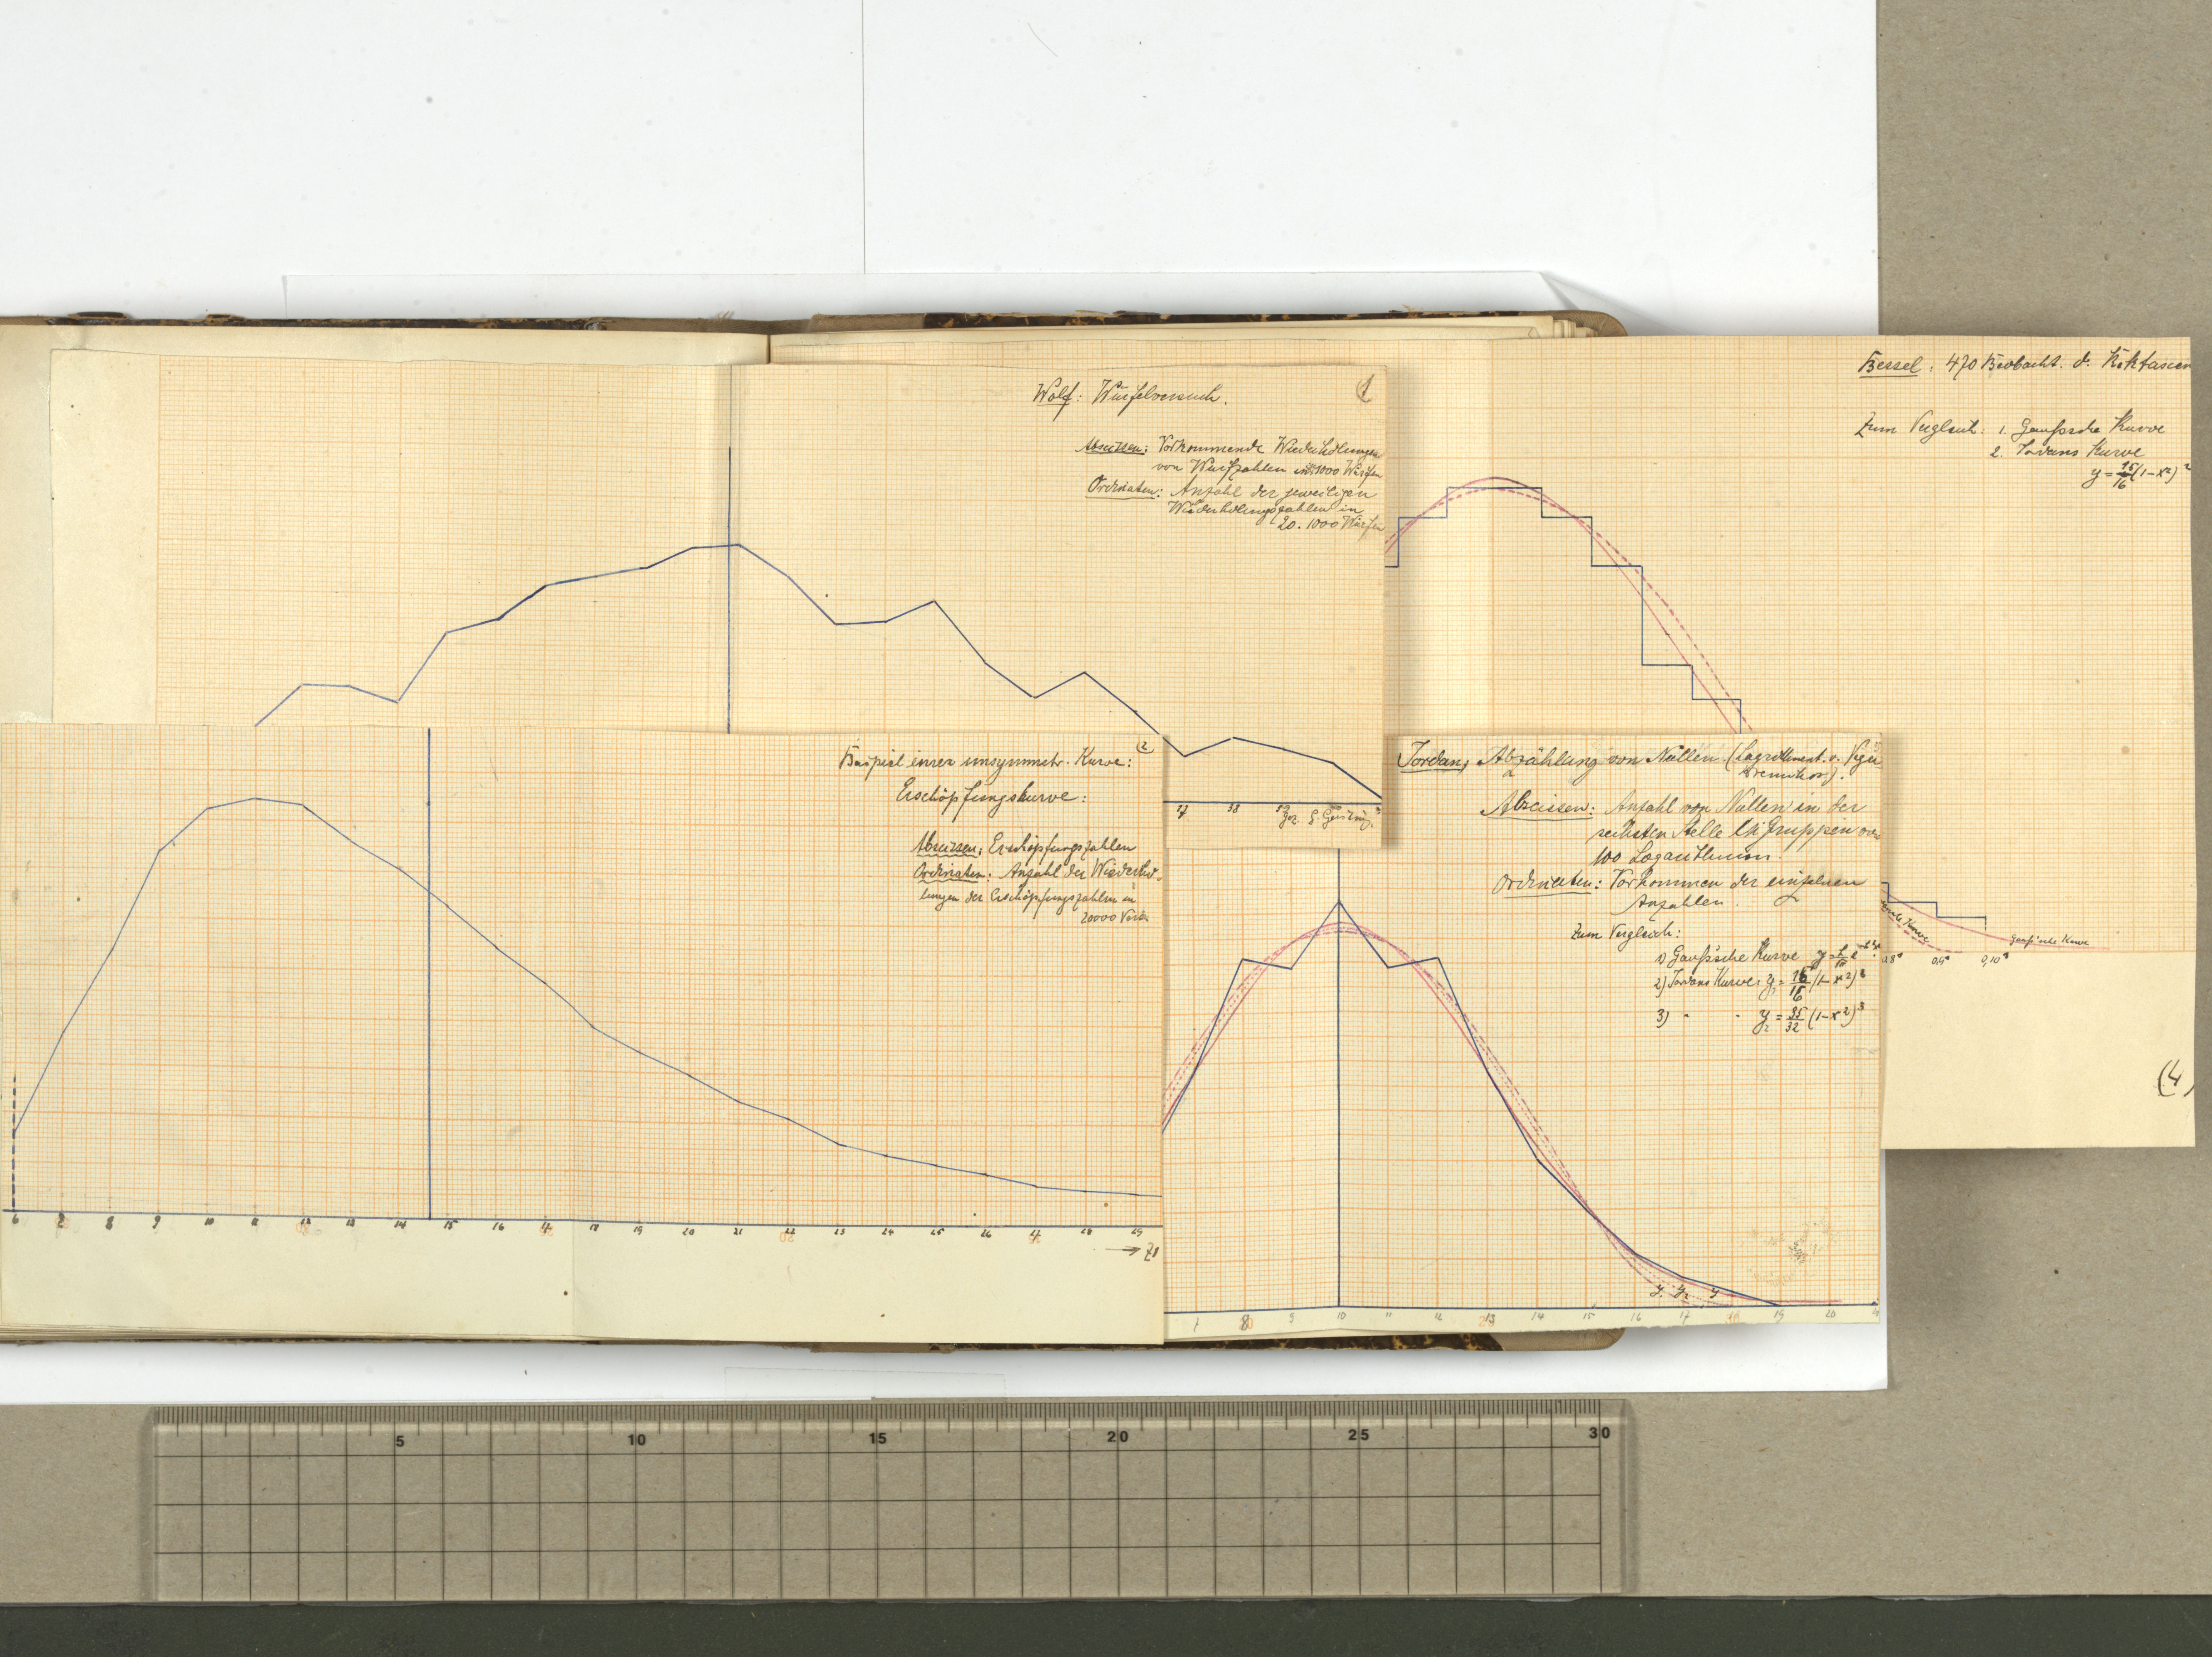 Wolf: Würfelversuch.
1
Abszissen: Vorkommende Wiederholungen
von Wurfzahlen in 1000 Würfen
Ordinaten: Anzahl der jeweiligen
Wiederholungszahlen in
20 . 1000 Würfen
37 38 39
gez. G.
Bessel: 470 Beobacht. d.
Zum Vergleich: 1. Gaußsche Kurve
2. Jordans Kurve
y = 15/16 (1-x²)²
Kurve
Gauß'sche Kurve
0,8 0,9 0,10
(4)
Beispiel einer unsymmetr. Kurve:
2
Erschöpfungskurve:
Abszissen: Erschöpfungszahlen
Ordinaten: Anzahl der Wiederho-
lungen der Erschöpfungszahlen in
20000
6 7 8 9 10 11 12 13 14 15 16 17 18 19 20 21 22 23 24 25 26 27 28 29
20
Jordan, Abzählung von Nullen (Logarithment. v. Vega
Abszissen: Anzahl von Nullen in der
sechsten Stelle in Gruppen von
100 Logarithmen.
Ordinaten: Vorkommen der einzelnen
Anzahlen.
Zum Vergleich:
1) Gauß'sche Kurve
2) Jordans Kurve: y₁ = 15/16 (1-x²)²
3) " " y₂ = 35/32 (1-x²)³
y₁ y₂ y
7 8 9 10 11 12 13 14 15 16 17 18 19 20
5 10 15 20 25 30